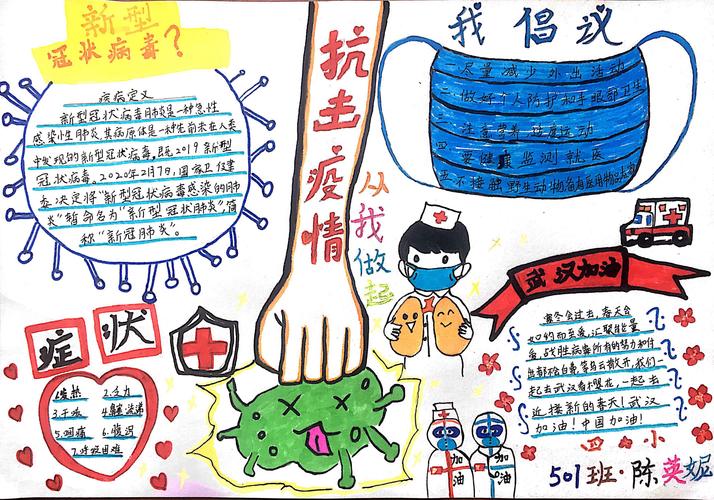 新型
冠状病毒？
疾病定义
新型冠状病毒肺炎是一种急性
感染性肺炎，其病原体是一种先前未在人类
中发现的新型冠状病毒，既2019新型
冠状病毒。2020年2月7日，国家卫健
委决定将"新型冠状病毒感染的肺
炎"暂命名为"新型冠状肺炎"，简
称"新冠肺炎"。
症状
1.发热 2.乏力
3.干咳 4.鼻塞流涕
5.咽痛 6.腹泻
7.呼吸困难
抗击疫情
从我做起
我倡议
一.尽量减少外出活动
二.做好个人防护和手眼部卫生
三.注意营养,适度运动
四.要健康监测就医
五.不接触野生动物
武汉加油
寒冬会过去,春天会
如约而至爱,汇聚能量
爱,战胜病毒所有的努力和付
出都不会白费,等乌云散开,我们一
起去武汉看樱花,一起去
迎接新的春天!武汉
加油!中国加油!
加油
加油
四一小
501班·陈英妮